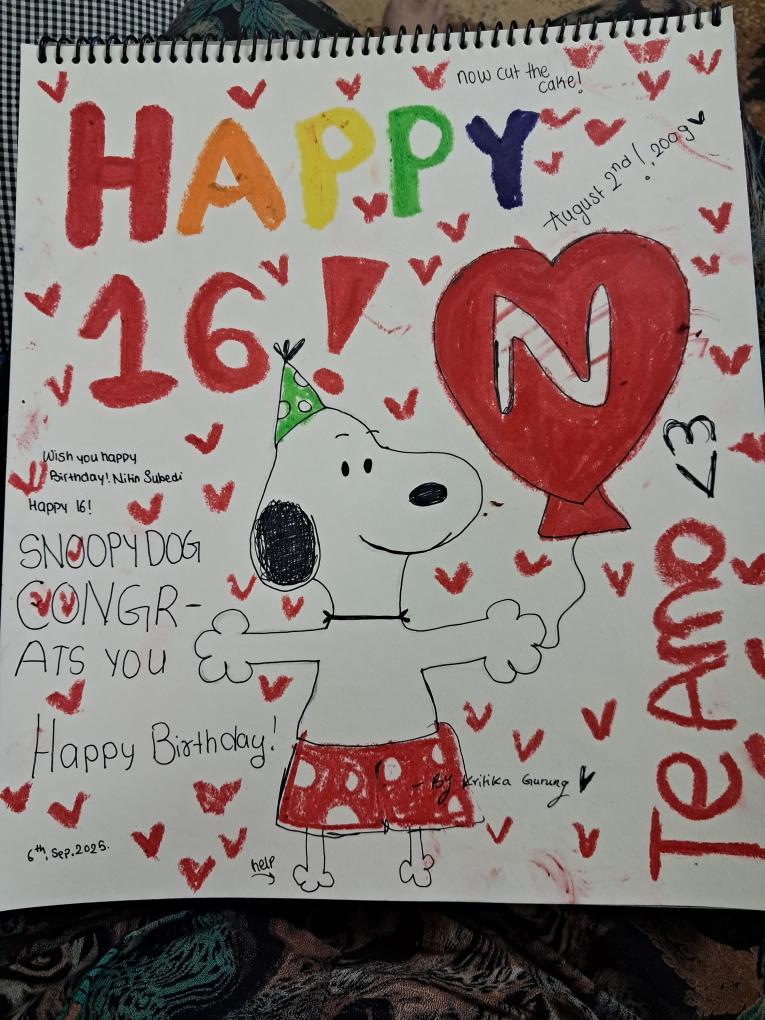 now cut the
cake!
HAPPY
August 2nd!, 2009
16!
N
Wish you happy
Birthday! Nitin Subedi
Happy 16!
SNOOPY DOG
CONGR-
ATS YOU
Happy Birthday!
- By Kritika Gurung
6th, Sep. 2025.
help
TeAmo <3